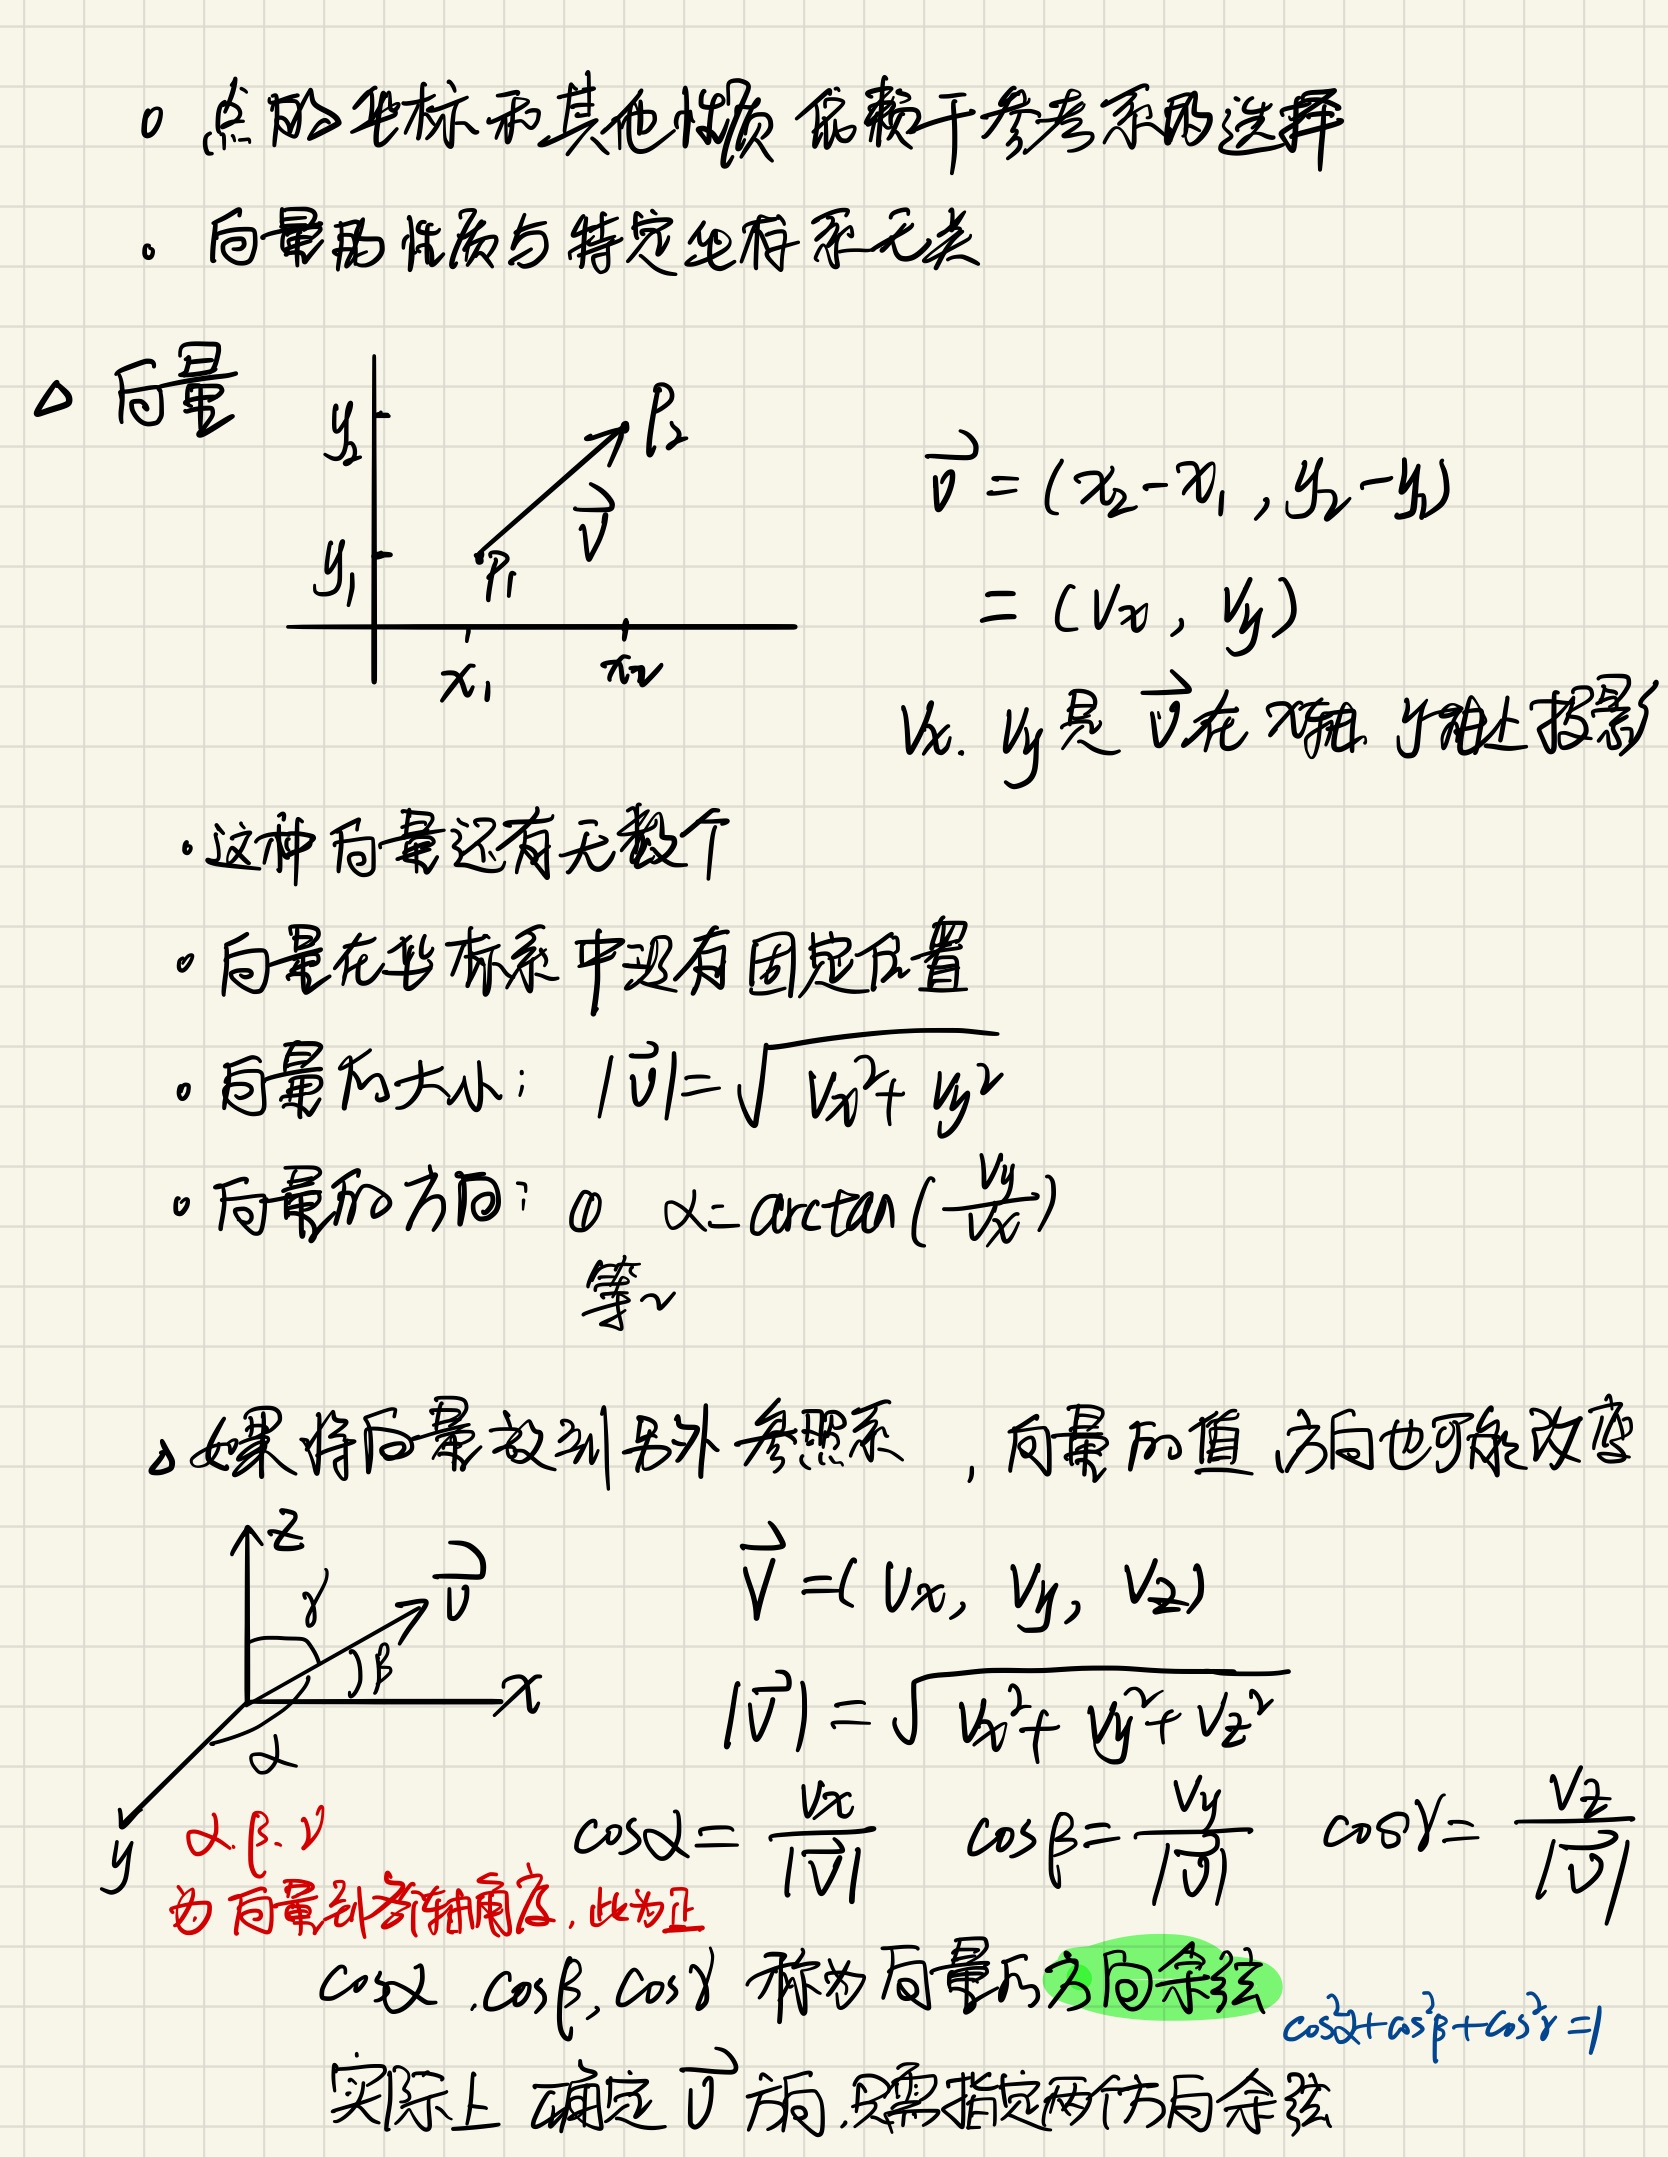 点的坐标和其他性质依赖于参考系的选择
向量的性质与特定坐标系无关
△ 向量
y₂
P₂
v⃗
y₁
P₁
x₁ x₂
v⃗ = (x₂-x₁, y₂-y₁)
= (Vx, Vy)
Vx. Vy是 v⃗ 在 x轴、y轴上投影
·这种向量还有无数个
。向量在坐标系中没有固定位置
。向量的大小: |v⃗|=√(Vx²+Vy²)
。向量的方向: α=arctan(Vy/Vx)
等~
△如果将向量放到另外参照系,向量的值、方向也可能改变
z
γ
v⃗
β
x
α
y
v⃗=(Vx, Vy, Vz)
|v⃗|=√(Vx²+Vy²+Vz²)
cosα=Vx/|v⃗| cosβ=Vy/|v⃗| cosγ=Vz/|v⃗|
α.β.γ
为向量到各轴角度,此为正
cosα,cosβ,cosγ 称为向量的方向余弦
cos²α+cos²β+cos²γ=1
实际上确定 v⃗ 方向,只需指定两个方向余弦